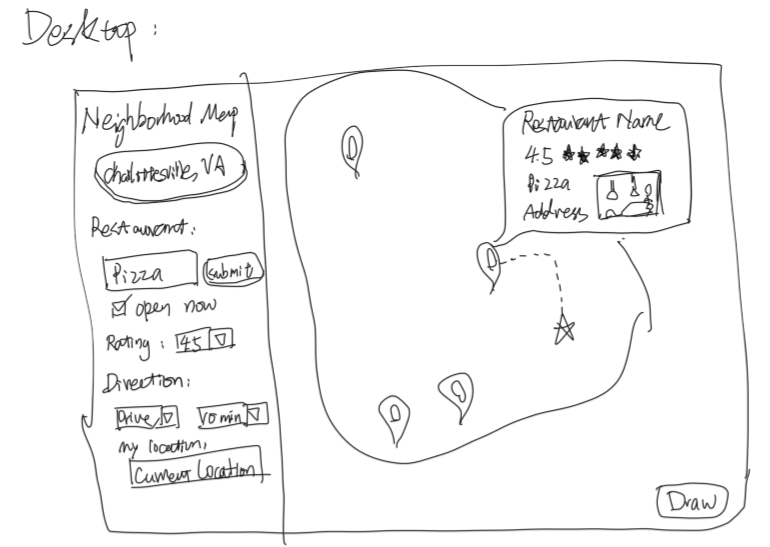 Desktop:
Neighborhood Map
Charlottesville, VA
Restaurant:
Pizza submit
open now
Rating: 4.5
Direction:
Drive 10 min
my location:
Current Location
Restaurant Name
4.5
Pizza
Address
Draw